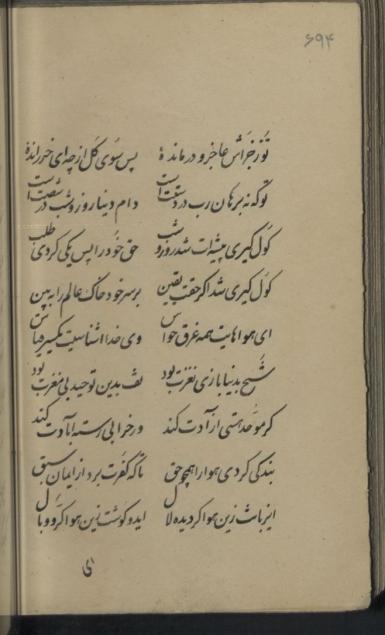 ۶۹۴
تو ز خراش عاجز و درمانده پس سوی کل از چه ای خر رانده
تو گه نه برهان رب در دستت است دام دنیا روز و شب در شصت است
کول گیری پیشه‌ات شد روز و شب حق خود را پس یکی کردی طلب
کول گیری شد اگر حقت یقین بر سر خود خاک عالم را ببین
ای هواهایت همه غرق حواس وی خدا اشناسیت یکسر قیاس
شیخ بدنیا بازی نغزت بود تف بدین توحید بی مغزت بود
کر موحد هستی ازآدت کند ور خرابی رسته آبادت کند
بندگی کردی هوا را همچو حق تا که کفرت برد از ایمان سبق
ای زبانت زین هوا گردیده لال ای دو گوشت زین هوا کر و وبال